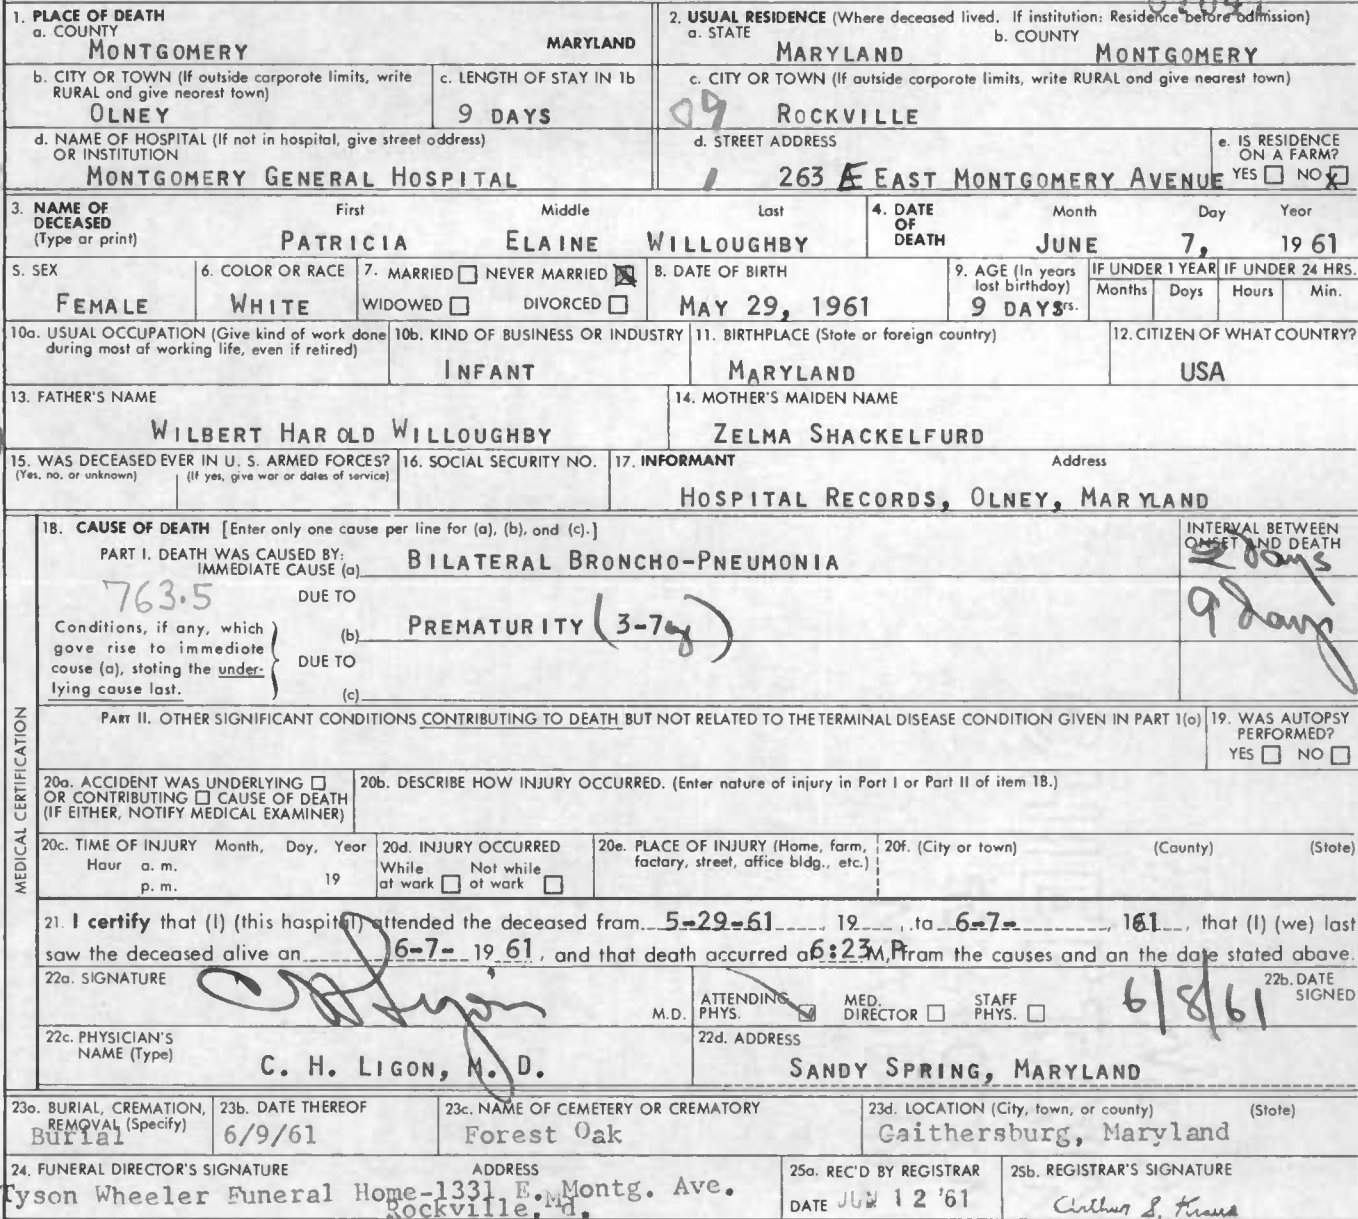 1. PLACE OF DEATH
a. COUNTY
MONTGOMERY
MARYLAND
2. USUAL RESIDENCE (Where deceased lived. If institution: Residence before admission)
a. STATE
MARYLAND
b. COUNTY
MONTGOMERY
b. CITY OR TOWN (If outside corporate limits, write
RURAL and give nearest town)
OLNEY
c. LENGTH OF STAY IN 1b
9 DAYS
c. CITY OR TOWN (If outside corporate limits, write RURAL and give nearest town)
ROCKVILLE
d. NAME OF HOSPITAL (If not in hospital, give street address)
OR INSTITUTION
MONTGOMERY GENERAL HOSPITAL
d. STREET ADDRESS
263 EAST MONTGOMERY AVENUE
e. IS RESIDENCE
ON A FARM?
YES NO X
3. NAME OF
DECEASED
(Type or print)
First Middle Last
PATRICIA ELAINE WILLOUGHBY
4. DATE
OF
DEATH
Month Day Year
JUNE 7, 1961
5. SEX
FEMALE
6. COLOR OR RACE
WHITE
7. MARRIED NEVER MARRIED X
WIDOWED DIVORCED
8. DATE OF BIRTH
MAY 29, 1961
9. AGE (In years
last birthday)
9 DAYS yrs.
IF UNDER 1 YEAR
Months Days
IF UNDER 24 HRS.
Hours Min.
10a. USUAL OCCUPATION (Give kind of work done
during most of working life, even if retired)
10b. KIND OF BUSINESS OR INDUSTRY
INFANT
11. BIRTHPLACE (State or foreign country)
MARYLAND
12. CITIZEN OF WHAT COUNTRY?
USA
13. FATHER'S NAME
WILBERT HAROLD WILLOUGHBY
14. MOTHER'S MAIDEN NAME
ZELMA SHACKELFURD
15. WAS DECEASED EVER IN U. S. ARMED FORCES?
(Yes, no, or unknown) (If yes, give war or dates of service)
16. SOCIAL SECURITY NO.
17. INFORMANT Address
HOSPITAL RECORDS, OLNEY, MARYLAND
18. CAUSE OF DEATH [Enter only one cause per line for (a), (b), and (c).]
PART I. DEATH WAS CAUSED BY:
IMMEDIATE CAUSE (a) BILATERAL BRONCHO-PNEUMONIA
INTERVAL BETWEEN
ONSET AND DEATH
2 days
763.5
DUE TO
(b) PREMATURITY (3-7
9 days
Conditions, if any, which
gave rise to immediate
cause (a), stating the under-
lying cause last.
DUE TO
(c)
MEDICAL CERTIFICATION
PART II. OTHER SIGNIFICANT CONDITIONS CONTRIBUTING TO DEATH BUT NOT RELATED TO THE TERMINAL DISEASE CONDITION GIVEN IN PART I(a)
19. WAS AUTOPSY
PERFORMED?
YES NO
20a. ACCIDENT WAS UNDERLYING
OR CONTRIBUTING CAUSE OF DEATH
(IF EITHER, NOTIFY MEDICAL EXAMINER)
20b. DESCRIBE HOW INJURY OCCURRED. (Enter nature of injury in Part I or Part II of item 18.)
20c. TIME OF INJURY Month, Day, Year
Hour a. m.
p. m. 19
20d. INJURY OCCURRED
While Not while
at work at work
20e. PLACE OF INJURY (Home, farm,
factory, street, office bldg., etc.)
20f. (City or town) (County) (State)
21. I certify that (I) (this hospital) attended the deceased from 5-29-61 19 , to 6-7- 1961 that (I) (we) last
saw the deceased alive on 6-7- 19 61, and that death occurred at 6:23 M, P from the causes and on the date stated above.
22a. SIGNATURE
C H Ligon
M.D.
ATTENDING
PHYS.
MED.
DIRECTOR
STAFF
PHYS.
6/8/61
22b. DATE
SIGNED
22c. PHYSICIAN'S
NAME (Type)
C. H. LIGON, M. D.
22d. ADDRESS
SANDY SPRING, MARYLAND
23a. BURIAL, CREMATION,
REMOVAL (Specify)
Burial
23b. DATE THEREOF
6/9/61
23c. NAME OF CEMETERY OR CREMATORY
Forest Oak
23d. LOCATION (City, town, or county) (State)
Gaithersburg, Maryland
24. FUNERAL DIRECTOR'S SIGNATURE ADDRESS
Tyson Wheeler Funeral Home-1331 E. Montg. Ave.
Rockville, Md.
25a. REC'D BY REGISTRAR
DATE JUN 12 '61
25b. REGISTRAR'S SIGNATURE
Arthur S. Kraus